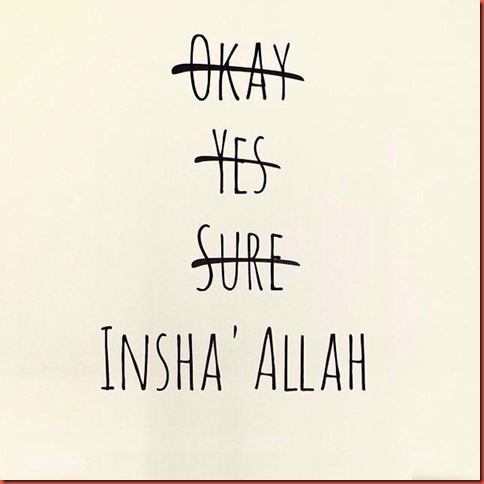 OKAY
YES
SURE
INSHA' ALLAH